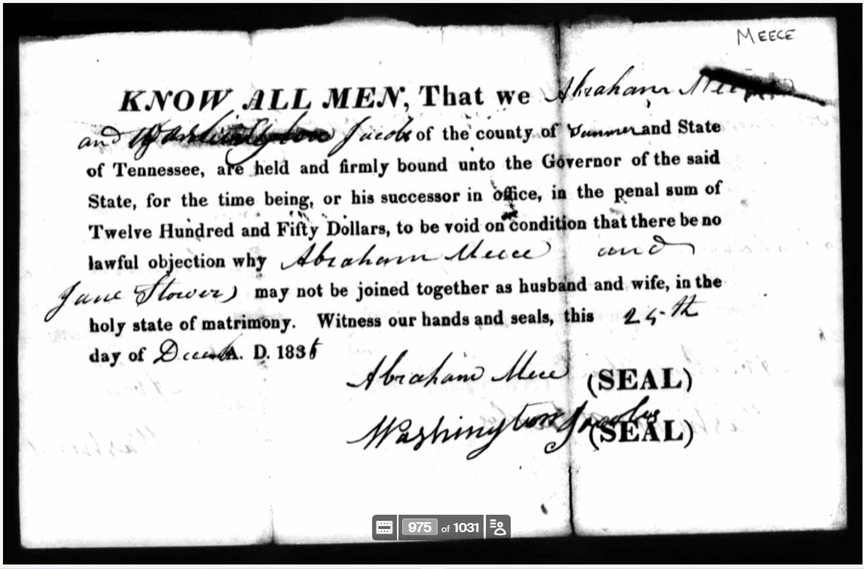 MEECE
KNOW ALL MEN, That we Abraham
and Washington Jacobs of the county of Sumner and State
of Tennessee, are held and firmly bound unto the Governor of the said
State, for the time being, or his successor in office, in the penal sum of
Twelve Hundred and Fifty Dollars, to be void on condition that there be no
lawful objection why Abraham Meece and
Jane may not be joined together as husband and wife, in the
holy state of matrimony. Witness our hands and seals, this
day of A. D. 183
Abraham Meece (SEAL)
Washington Jacobs (SEAL)
975 of 1031